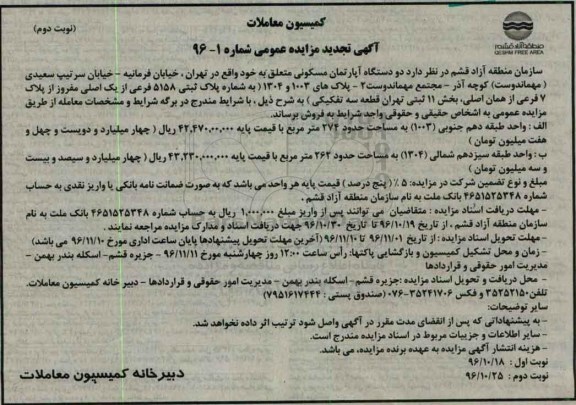 کمیسیون معاملات
(نوبت دوم)
سازمان منطقه آزاد قشم
QESHM FREE AREA
آگهی تجدید مزایده عمومی شماره ۱- ۹۶
سازمان منطقه آزاد قشم در نظر دارد دو دستگاه آپارتمان مسکونی متعلق به خود واقع در تهران ، خیابان فرمانیه - خیابان سرتیپ سعیدی
( مهماندوست) کوچه آذر - مجتمع مهماندوست۲ - پلاک های ۱۰۰۳ و ۱۳۰۴ ( به شماره پلاک ثبتی ۵۱۵۸ فرعی از یک اصلی مفروز از پلاک
۷ فرعی از همان اصلی، بخش ۱۱ ثبتی تهران قطعه سه تفکیکی ) به شرح ذیل ، با شرایط مندرج در برگه شرایط و مشخصات معامله از طریق
مزایده عمومی به اشخاص حقیقی و حقوقی واجد شرایط به فروش برساند.
الف : واحد طبقه دهم جنوبی (۱۰۰۳) به مساحت حدود ۲۷۴ متر مربع با قیمت پایه ۴۲,۴۷۰,۰۰۰,۰۰۰ ریال ( چهار میلیارد و دویست و چهل و
هفت میلیون تومان )
ب : واحد طبقه سیزدهم شمالی (۱۳۰۴) به مساحت حدود ۲۶۲ متر مربع با قیمت پایه ۴۳,۲۳۰,۰۰۰,۰۰۰ ریال ( چهار میلیارد و سیصد و بیست
و سه میلیون تومان )
مبلغ و نوع تضمین شرکت در مزایده: ۵ ٪ ( پنج درصد ) قیمت پایه هر واحد می باشد که به صورت ضمانت نامه بانکی یا واریز نقدی به حساب
شماره ۴۶۵۱۵۲۵۳۴۸ بانک ملت به نام سازمان منطقه آزاد قشم .
- مهلت دریافت اسناد مزایده : متقاضیان می توانند پس از واریز مبلغ ۱,۰۰۰,۰۰۰ ریال به حساب شماره ۴۶۵۱۵۲۵۳۴۸ بانک ملت به نام
سازمان منطقه آزاد قشم ، از تاریخ ۹۶/۱۰/۱۹ تا تاریخ ۹۶/۱۰/۳۰ جهت دریافت اسناد و مدارک مزایده مراجعه نمایند .
- مهلت تحویل اسناد مزایده : از تاریخ ۹۶/۱۱/۰۱ تا ۹۶/۱۱/۱۰ (آخرین مهلت تحویل پیشنهادها پایان ساعت اداری مورخ ۹۶/۱۱/۱۰ می باشد)
- زمان و محل تشکیل کمیسیون و بازگشایی پاکتها: رأس ساعت ۱۲:۰۰ روز چهارشنبه مورخ ۹۶/۱۱/۱۱ - جزیره قشم- اسکله بندر بهمن -
مدیریت امور حقوقی و قراردادها
- محل دریافت و تحویل اسناد مزایده :جزیره قشم- اسکله بندر بهمن - مدیریت امور حقوقی و قراردادها - دبیر خانه کمیسیون معاملات.
تلفن:۳۵۲۵۲۱۵۰ و فکس ۳۵۲۴۱۷۰۶-۰۷۶ (صندوق پستی : ۷۹۵۱۶۱۷۴۴۴)
سایر توضیحات:
- به پیشنهاداتی که پس از انقضای مدت مقرر در آگهی واصل شود ترتیب اثر داده نخواهد شد.
- سایر اطلاعات و جزییات مربوط در اسناد مزایده مندرج است.
- هزینه انتشار آگهی مزایده به عهده برنده مزایده، می باشد.
نوبت اول : ۹۶/۱۰/۱۸
نوبت دوم : ۹۶/۱۰/۲۵
دبیرخانه کمیسیون معاملات